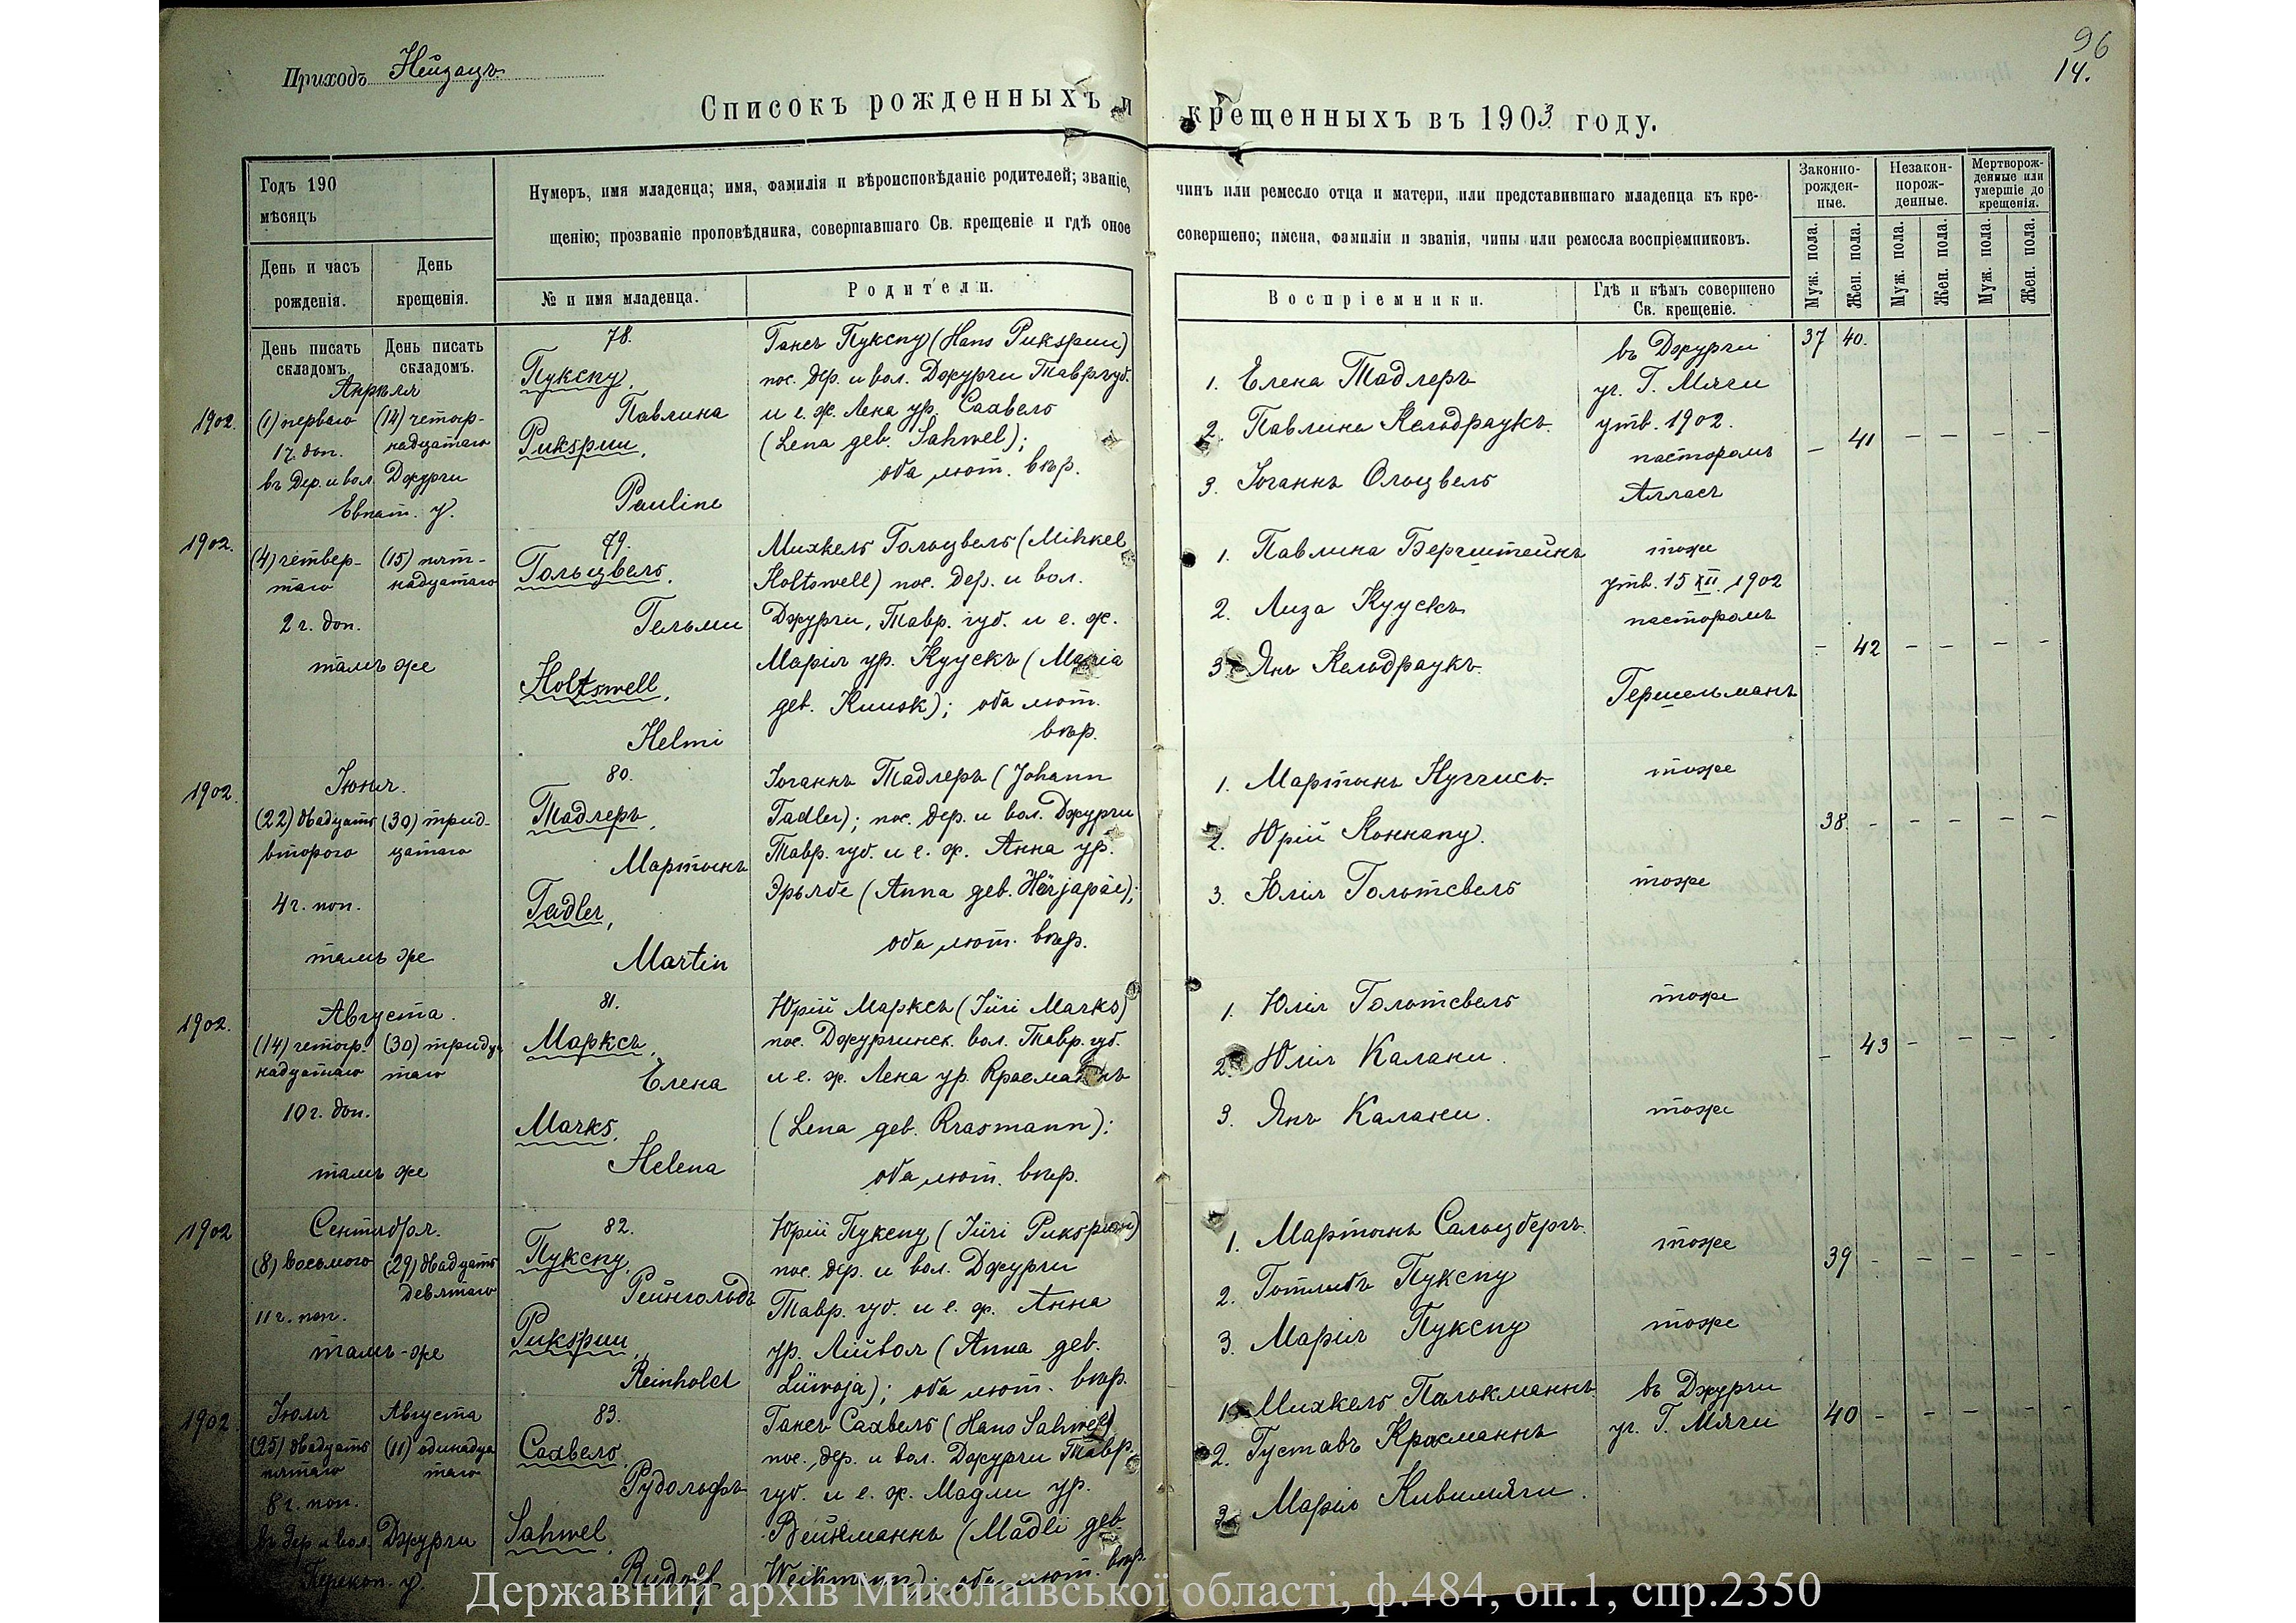 Приходъ Нейзацъ
96
14.
Списокъ рожденныхъ и крещенныхъ въ 1903 году.
Годъ 190
мѣсяцъ
День и часъ
рожденія.
День
крещенія.
Нумеръ, имя младенца; имя, фамилія и вѣроисповѣданіе родителей; званіе, чинъ или ремесло отца и матери, или представившаго младенца къ кре-
щенію; прозваніе проповѣдника, совершавшаго Св. крещеніе и гдѣ оное совершено; имена, фамиліи и званія, чины или ремесла воспріемниковъ.
№ и имя младенца.
Родители.
Воспріемники.
Гдѣ и кѣмъ совершено
Св. крещеніе.
Законно-
рожден-
ные.
Незакон-
норож-
денные.
Мертворож-
денные или
умершіе до
крещенія.
Муж. пола.
Жен. пола.
Муж. пола.
Жен. пола.
Муж. пола.
Жен. пола.
День писать
складомъ.
День писать
складомъ.
Апрѣля
1902.
(1) перваго
12. доп.
(14) четыр-
надцатаго
въ дер. и вол. Джурчи
Евпат. у.
78.
Пукспу,
Павлина
Pukspuu,
Pauline
Гансъ Пукспу (Hans Pukspuu)
пос. дер. и вол. Джурчи Тавр. губ.
и е. ж. Лена ур. Сахвель
(Lena geb. Sahwel);
оба лют. вѣр.
1. Елена Тадлеръ
2. Павлина Кельдраукъ.
3. Іоганнъ Ольцвель
въ Джурчи
уч. Г. Мяги
утв. 1902.
пасторомъ
Алласъ
37 40.
— 41 — — — —
1902.
(4) четвер-
таго
2 ч. доп.
(15) пят-
надцатаго
тамъ же
79.
Гольцвель,
Гельми
Holtswell,
Helmi
Михкель Гольцвель (Mihkel
Holtswell) пос. дер. и вол.
Джурчи, Тавр. губ. и е. ж.
Марія ур. Куускъ (Maria
geb. Kuusk); оба лют.
вѣр.
1. Павлина Бергштейнъ
2. Лиза Куускъ
3. Янъ Кельдраукъ.
тоже
утв. 15 XII. 1902
пасторомъ
Гершельманъ
— 42 — — — —
1902.
Іюня.
(22) двадцать
второго
4 ч. поп.
(30) трид-
цатаго
тамъ же
80.
Тадлеръ,
Мартынъ
Tadler,
Martin
Іоганнъ Тадлеръ (Johann
Tadler); пос. дер. и вол. Джурчи
Тавр. губ. и е. ж. Анна ур.
(Anna geb. Härjapäe);
оба лют. вѣр.
1. Мартынъ Нуггисъ.
2. Юрій Коннапу.
3. Юлія Гольтсвель
тоже
тоже
38. — — — — —
1902.
Августа.
(14) четыр-
надцатаго
10 ч. доп.
(30) тридца
таго
тамъ же
81.
Марксъ,
Елена
Marks,
Helena
Юрій Марксъ (Jüri Marks)
пос. Джурчинск. вол. Тавр. губ.
и е. ж. Лена ур. Красманнъ
(Lena geb. Krasmann);
оба лют. вѣр.
1. Юлія Гольтсвель
2. Юлія Калаки.
3. Янъ Калаки.
тоже
тоже
— 43 — — — —
1902
Сентября.
(8) восьмого
11 ч. поп.
(29) двадцать
девятаго
тамъ-же
82.
Пукспу,
Рейнгольдъ
Pukspuu,
Reinhold
Юрій Пукспу (Jüri Pukspuu)
пос. дер. и вол. Джурчи
Тавр. губ. и е. ж. Анна
ур. Лійвоя (Anna geb.
Liiwoja); оба лют. вѣр.
1. Мартынъ Сальцбергъ.
2. Готлибъ Пукспу
3. Марія Пукспу
тоже
тоже
39 — — — — —
1902.
Іюля
(25) двадцать
пятаго
8 ч. поп.
Августа
(11) одинадца
таго
въ дер. и вол. Джурчи
Перекоп. у.
83.
Сахвель,
Рудольфъ
Sahwel,
Rudolf
Гансъ Сахвель (Hans Sahwel)
пос. дер. и вол. Джурчи Тавр.
губ. и е. ж. Мадли ур.
Вейкманнъ (Madli geb.
Weikmann); оба лют. вѣр.
1. Михкель Палькманнъ
2. Густавъ Красманнъ
3. Марія Кивимяги.
въ Джурчи
уч. Г. Мяги
40 — — — — —
Державний архів Миколаївської області, ф.484, оп.1, спр.2350